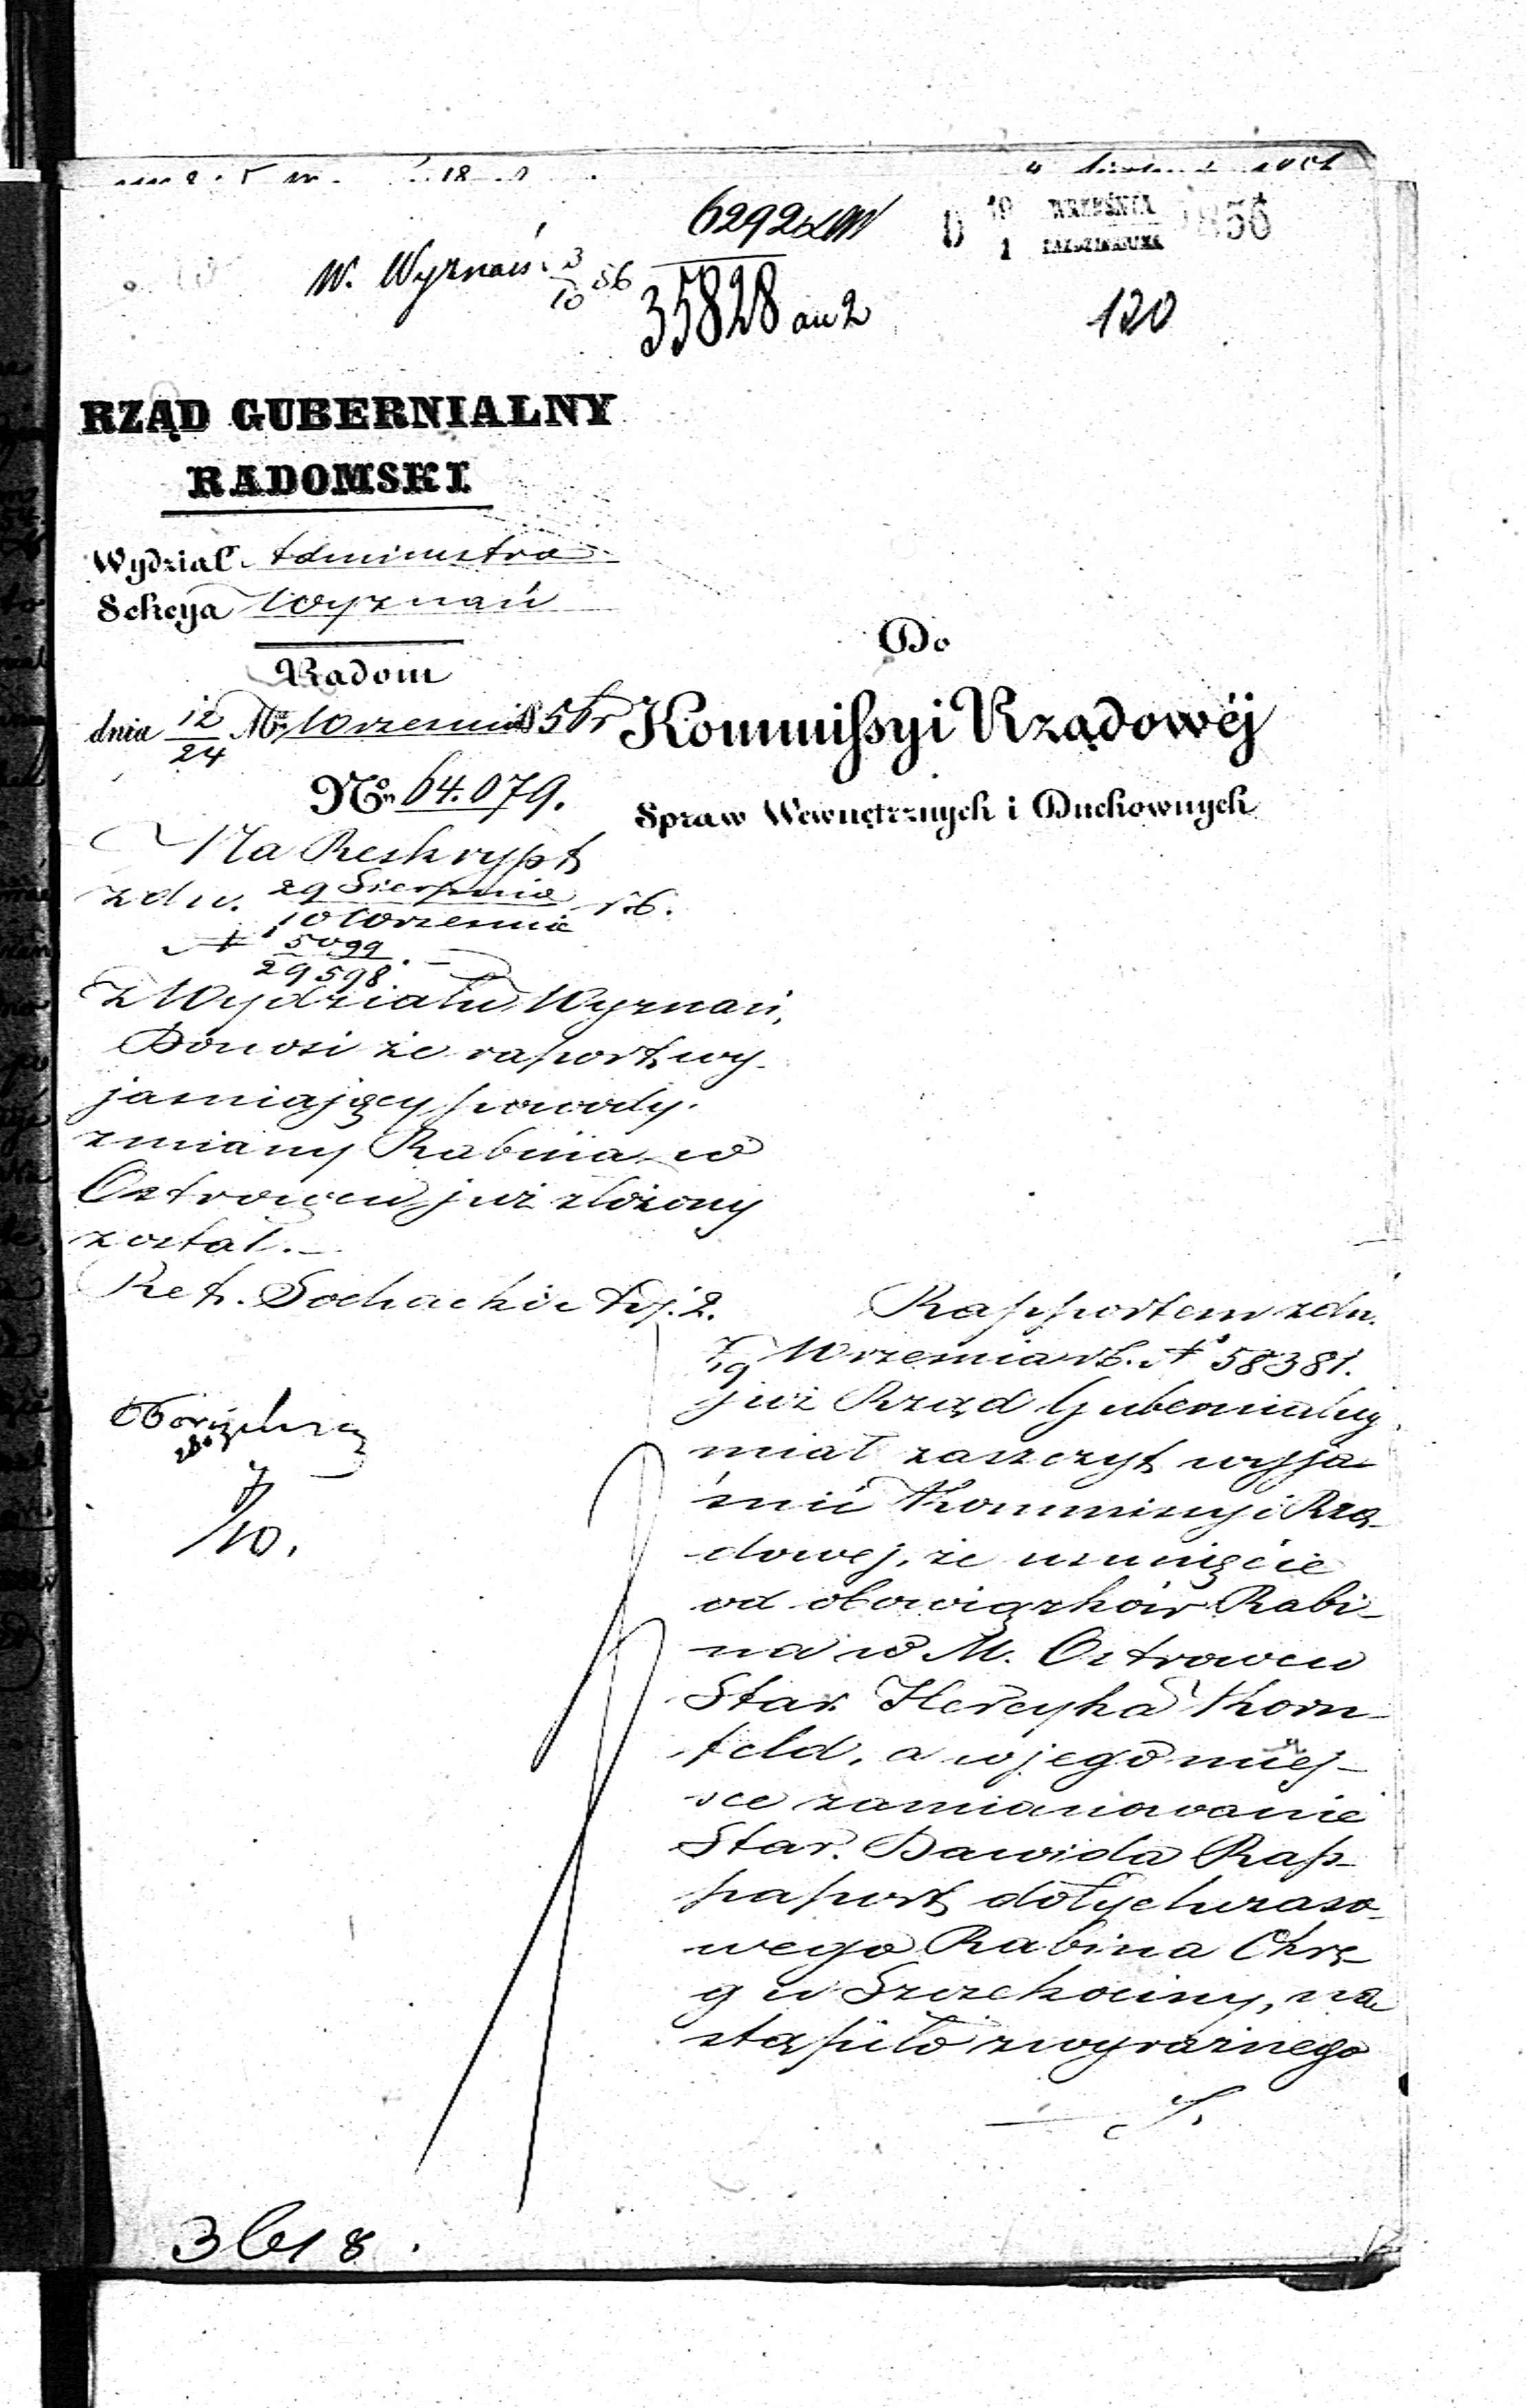 6292
W. Wyznań 3/10 56
35828 an 2
D 19 WRZEŚNIA 1856
1 PAŹDZIERNIKA
120
RZĄD GUBERNIALNY
RADOMSKI
Wydział Administra
Sekcya Wyznań
Radom
dnia 12/24 M. Września 856 r
No 64.079.
Do
Kommissyi Rządowéj
Spraw Wewnętrznych i Duchownych
Na Reskrypt
z dn. 29 Sierpnia / 10 Września r.b.
N 5099 / 29598. –
z Wydziału Wyznań,
Donosi że raport wy-
jasniający powody
zmiany Rabina w
Ostrowcu już złożony
został. –
Ref. Sochacki
Rapportem z dn.
7/19 Września r.b. N 58381.
już Rząd Gubernialny
miał zaszczyt wyja-
śnić Kommissyi Rzą-
dowej, że usunięcie
od obowiązków Rabi-
na w M. Ostrowcu
Star. Hercyka Korn-
feld, a w jego miej-
sce zamianowanie
Star. Dawida Rap-
paport dotychczaso-
wego Rabina Okrę-
gu Szczekociny, na-
stąpiło z wyraźnego
/10.
3618.